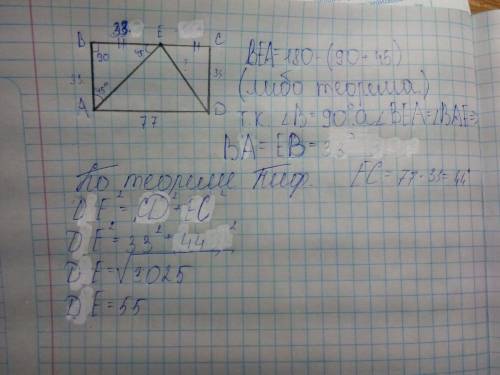 33
B E C
90 45°
33 ? 33
45°
A D
77
BEA=180-(90+45)
(либо теорема)
т.к. ∠B=90° а ∠BEA=∠BAE⇒
BA=EB=33
По теореме Пиф. EC=77-33=44
DE²=CD²+EC²
DE²=33²+44²
DE=√3025
DE=55